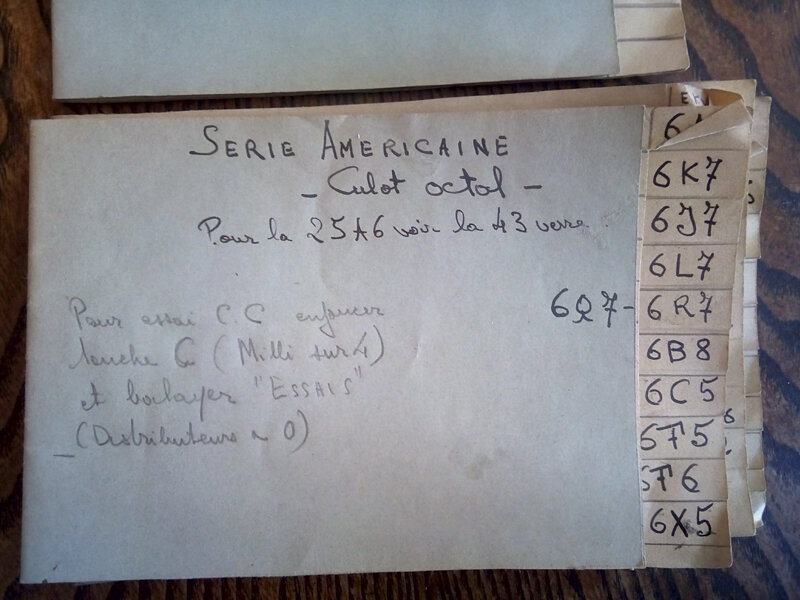 SERIE AMERICAINE
- Culot octal -
Pour la 25A6 voir la 43 verre.
Pour essai C.C enfoncer
touche C (Milli sur 4)
et balayer "ESSAIS"
(Distributeurs à 0)
6Q7-
6K7
6J7
6L7
6R7
6B8
6C5
6F5
6F6
6X5